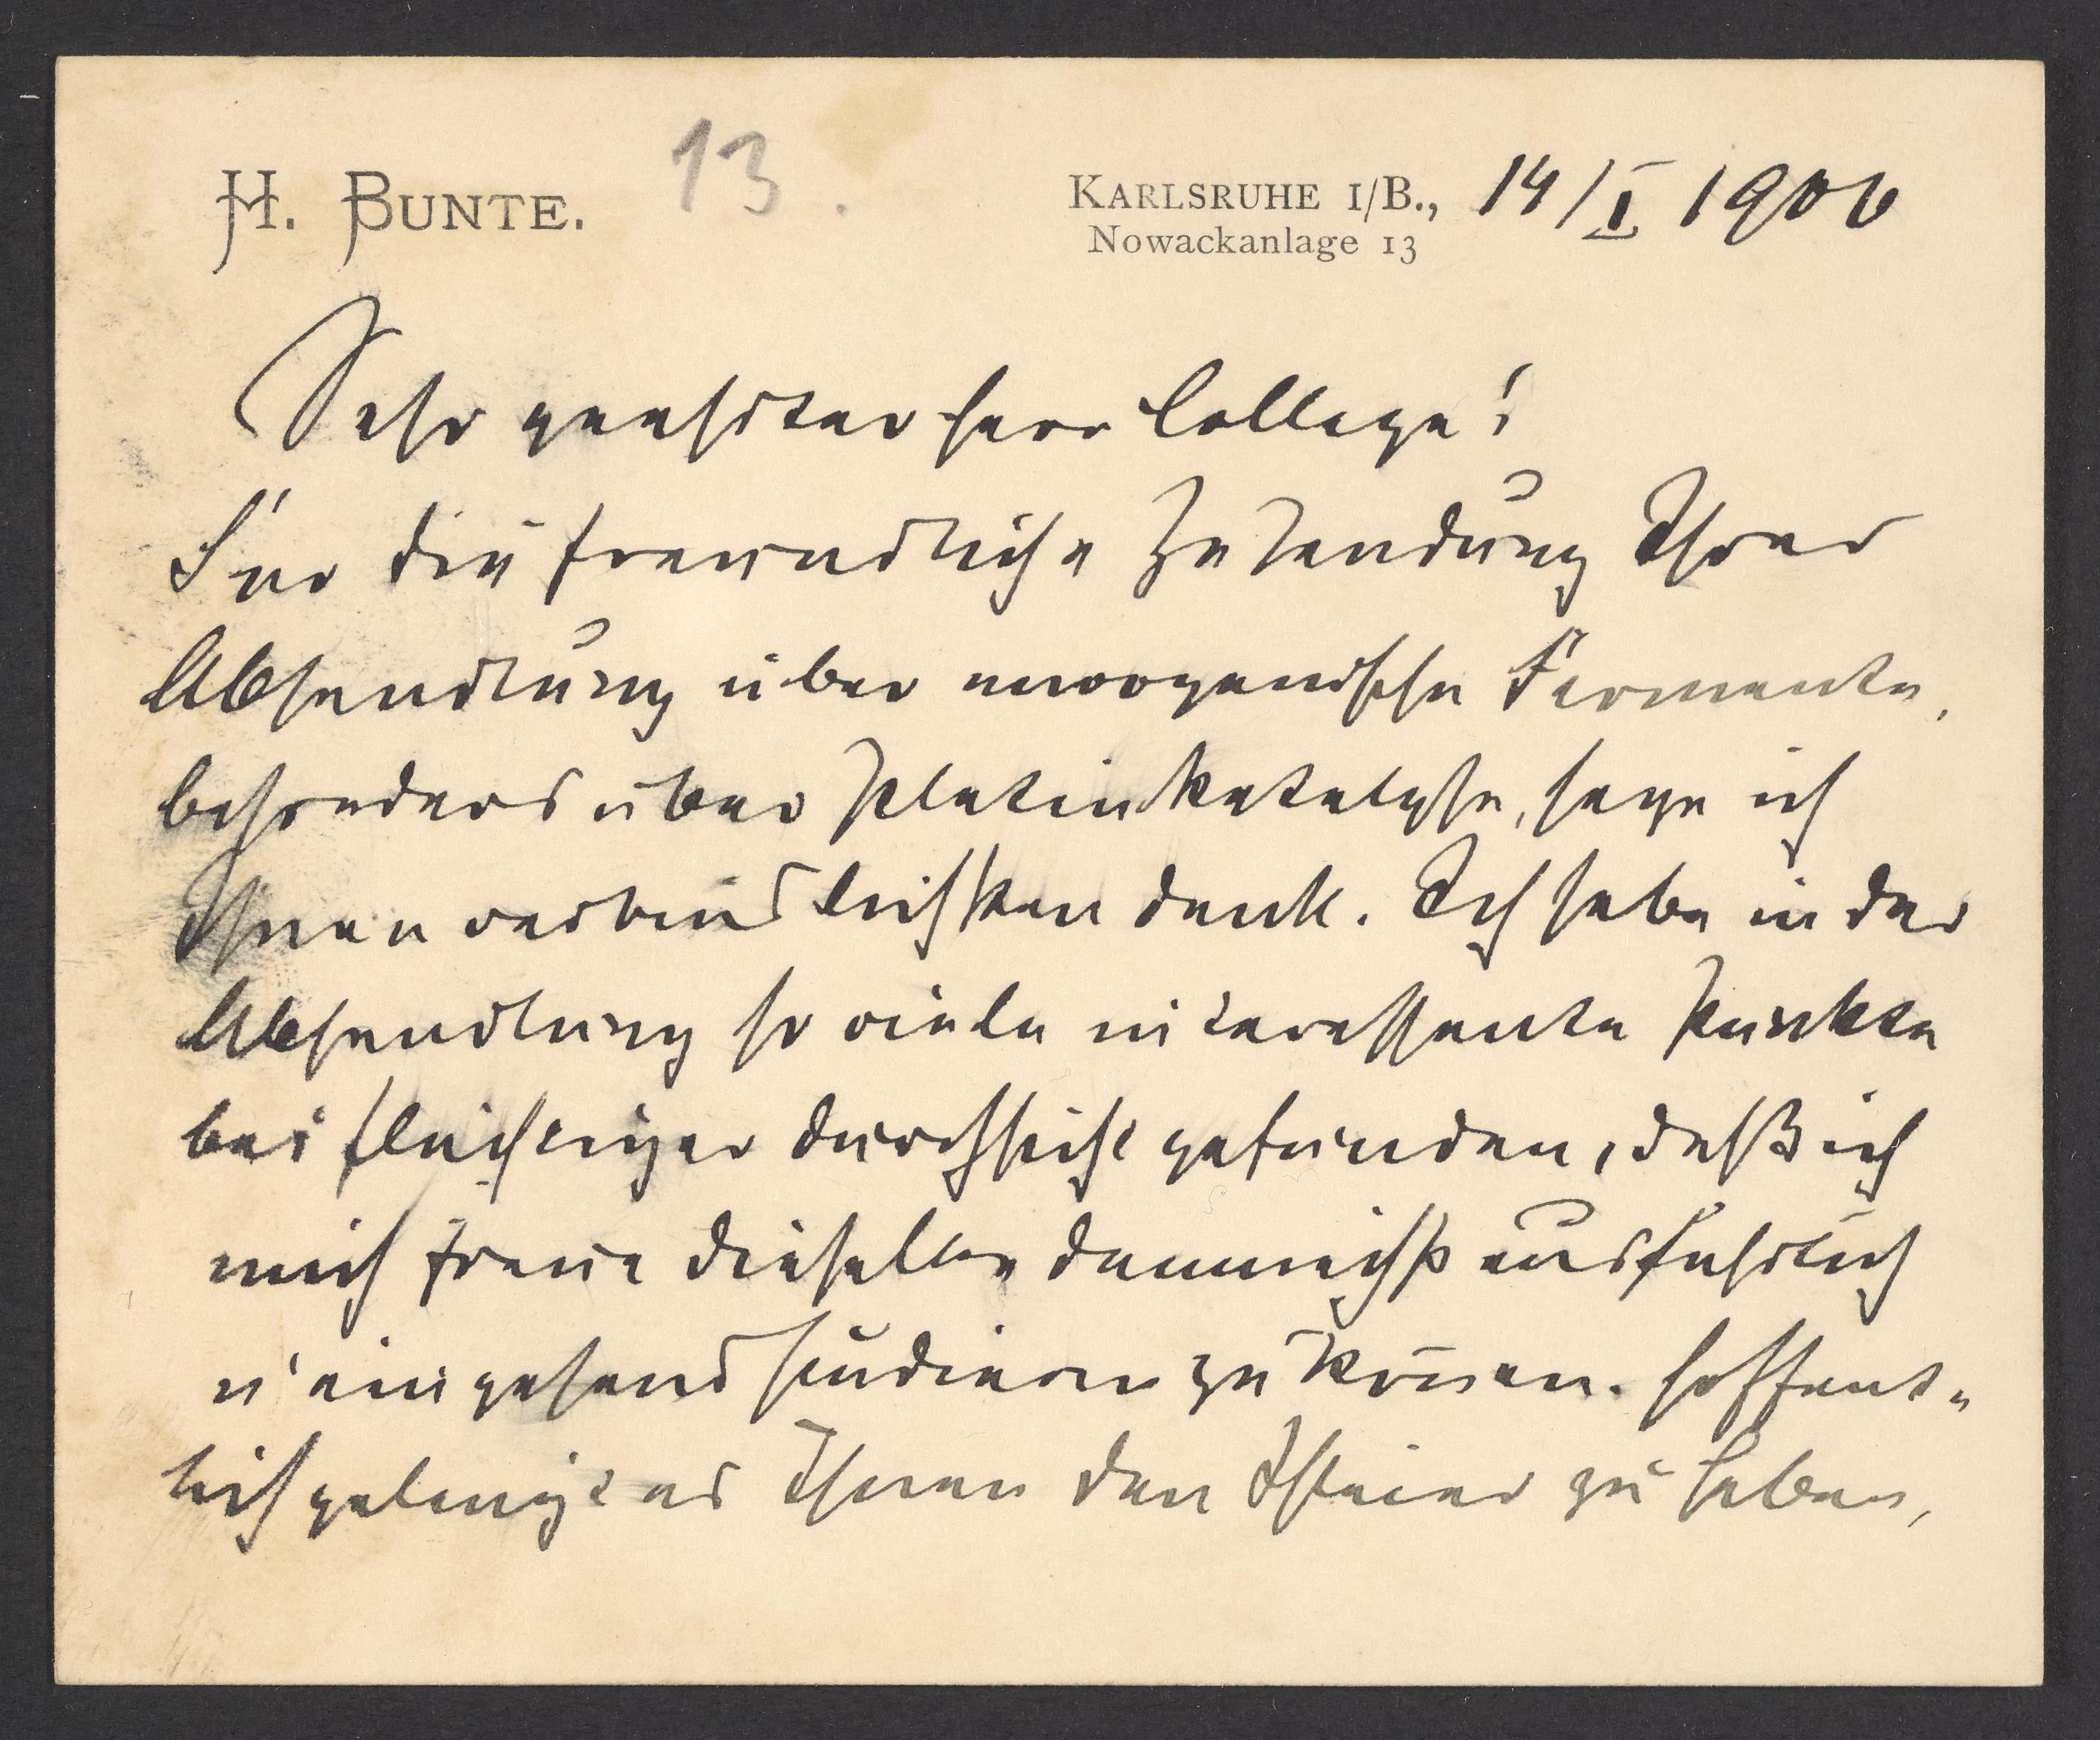 H. BUNTE.
13.
KARLSRUHE I/B., 14/I 1906
Nowackanlage 13
Sehr geehrter Herr College!
Für die freundliche Zusendung Ihrer
Abhandlung über anorganische Fermente,
besonders über Platinkatalyse, sage ich
Ihnen verbindlichsten Dank. Ich habe in der
Abhandlung so viele interessante Punkte
bei flüchtiger Durchsicht gefunden, daß ich
mich freue dieselben demnächst ausführlich
u eingehend studieren zu können. Hoffent-
lich gelingt es Ihnen den zu heben,